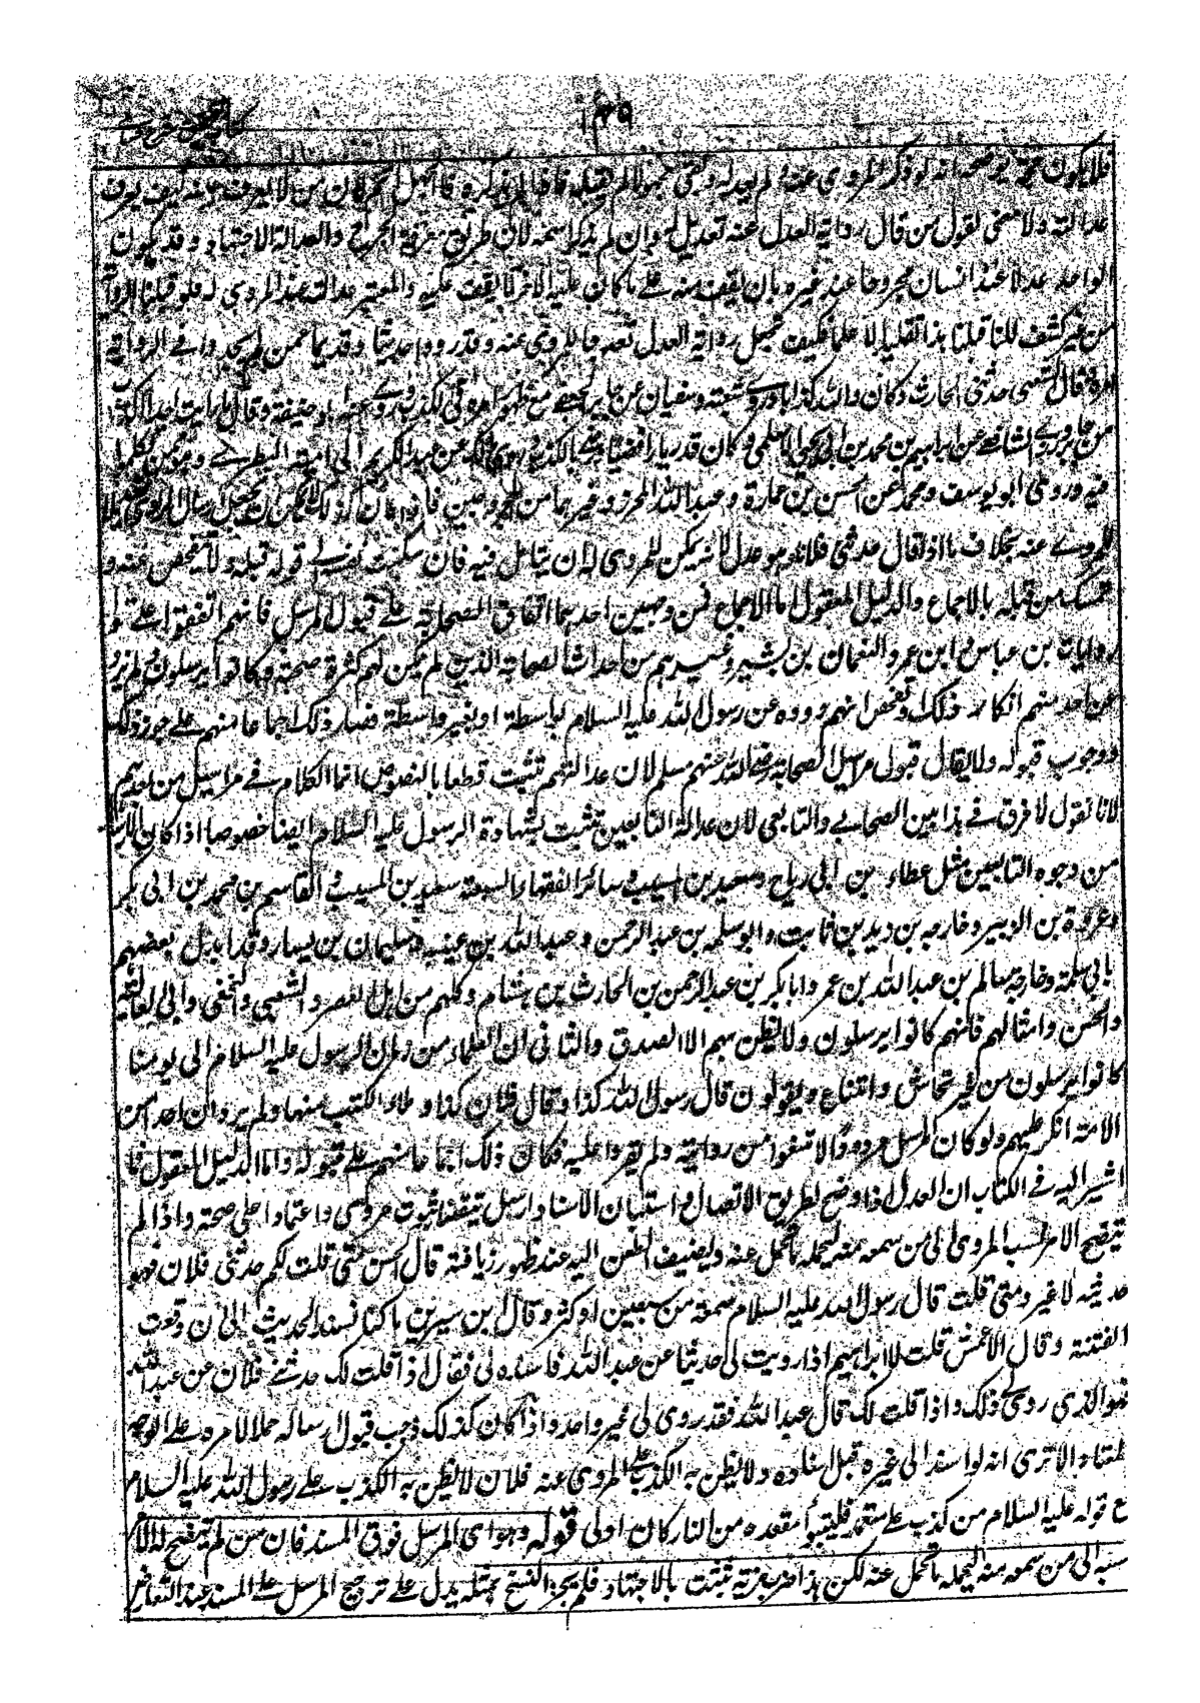 ۱۴۹
فلا يكون حجة يوضحه انه لو ذكر المروي عنه ولم يعدله وبقى مجهولا لم نقبله فاذا لم يذكره فالجهل اتم لان من لا يعرف عينه كيف يعرف
عدالته ولا معنى لقول من قال رواية العدل عنه تعديل له وان لم يذكر اسمه لان طريق معرفة الجرح والعدالة الاجتهاد وقد يكون
الواحد عدلا عند انسان مجروحا عند غيره بان يقف منه على ما كان عليه الاخر لا يقف عليه والمعتبر عدالته عند المروي له فلو قبلنا الرواية
من غير كشف لكنا قبلناها تقليدا لا علما فكيف نجعل رواية العدل تعديلا للمروي عنه وقد رووا حديثا وقديما عمن لم يحمدوا في الرواية
امره فقال الشعبي حدثنى الحارث وكان والله كذابا وروى شعبة وسفيان عن جابر الجعفي مع ظهور امره في الكذب وروى عنه ابو حنيفة وقال ما رايت احدا اكذب
من جابر وروى الشافعي عن ابراهيم بن محمد بن ابى يحيى الاسلمي وكان قدريا رافضيا وروى مالك عن عبد الكريم ابى امية البصري وهو ممن تكلموا
فيه وروى ابو يوسف ومحمد عن الحسن بن عمارة وعبد الله المحرر وغيرهما من المجروحين فاذا كان كذلك لا يمكن ان يجعل ارسال الراوي تعديلا
للمروى عنه بخلاف ما اذا قال حدثنى فلان وهو عدل لانه يمكن للمروى له ان يتامل فيه فان سكنت نفسه الى قوله قبله والا تفحص عنه و
تمسك من قبله بالاجماع والدليل المعقول اما الاجماع فمن وجهين احدهما اتفاق الصحابة على قبول المرسل فانهم اتفقوا على قبول
روايات بن عباس وابن عمر والنعمان بن بشير وغيرهم من احداث الصحابة الذين لم يكن لهم كثرة صحبة وكانوا يرسلون ولم يرو
عن احد منهم انكار ذلك وتفحص انهم رووه عن رسول الله عليه السلام بواسطة او بغير واسطة فصار ذلك اجماعا منهم على جواز ذلك
ووجوب قبوله ولا يقال قبول مراسيل الصحابة رضى الله عنهم مسلم لان عدالتهم تثبت قطعا بالنصوص انما الكلام في مراسيل من بعدهم
لانا نقول لا فرق في هذا بين الصحابي والتابعي لان عدالة التابعين تثبت بشهادة الرسول عليه السلام ايضا خصوصا اذا كان الارسال
من وجوه التابعين مثل عطاء بن ابى رباح وسعيد بن المسيب وسائر الفقهاء السبعة سعيد بن المسيب والقاسم بن محمد بن ابى بكر
وعروة بن الزبير وخارجة بن زيد بن ثابت وابو سلمة بن عبد الرحمن وعبد الله بن عتيبة وسليمان بن يسار وقد ابدل بعضهم
بابى سلمة وخارجة سالم بن عبد الله بن عمر وابا بكر بن عبد الرحمن بن الحارث بن هشام وكلهم من اهل العصر والشعبي والنخعي وابى العالية
والحسن وامثالهم فانهم كانوا يرسلون ولا يظن بهم الا الصدق والثانى ان العلماء من زمان الرسول عليه السلام الى يومنا
كانوا يرسلون من غير تحاش وامتناع ويقولون قال رسول الله كذا وقال فلان كذا وملاؤا الكتب منها ولم يرو ان احدا من
الامة انكر عليهم ولو كان المرسل مردودا لامتنعوا من روايته ولم يقروا عليه فكان ذلك اجماعا منهم على قبوله واما الدليل المعقول فما
اشير اليه في الكتاب ان العدل اذا وضح له طريق الاتصال واستبان الاسناد ارسل متيقنا ثبوت مروى واعتمادا على صحته واذا لم
يتضح الامر نسب المروى الى من سمعه منه ليحمله ما تحمل عنه وليضيف الطعن اليه عند ظهور زيافته قال الحسن متى قلت لكم حدثنى فلان فهو
حديثه لا غير ومتى قلت قال رسول الله عليه السلام سمعته من سبعين او اكثر وقال بن سيرين ما كنا نسند الحديث الى ان وقعت
الفتنة وقال الاعمش قلت لابراهيم اذا رويت لى حديثا عن عبد الله فاسنده لى فقال اذا قلت لك حدثنى فلان عن عبد الله
فهو الذي روى لى ذلك واذا قلت لك قال عبد الله فقد روى لى غير واحد واذا كان كذلك وجب قبول ارساله حملا لامره على الوجه
المعتاد الا ترى انه لو اسند الى غيره قبل اسناده ولا يظن به الكذب على المروى عنه فلان لا يظن به الكذب على رسول الله عليه السلام
مع قوله عليه السلام من كذب على متعمدا فليتبوأ مقعده من النار كان اولى قوله وهو اى المرسل فوق المسند فان من لم يتضح له الامر
نسبه الى من سمعه منه ليحمله ما تحمل عنه لكن هذا ضرب مزية تثبت بالاجتهاد فلم يجز النسخ بمثله يدل على ترجيح المرسل على المسند عند التعارض